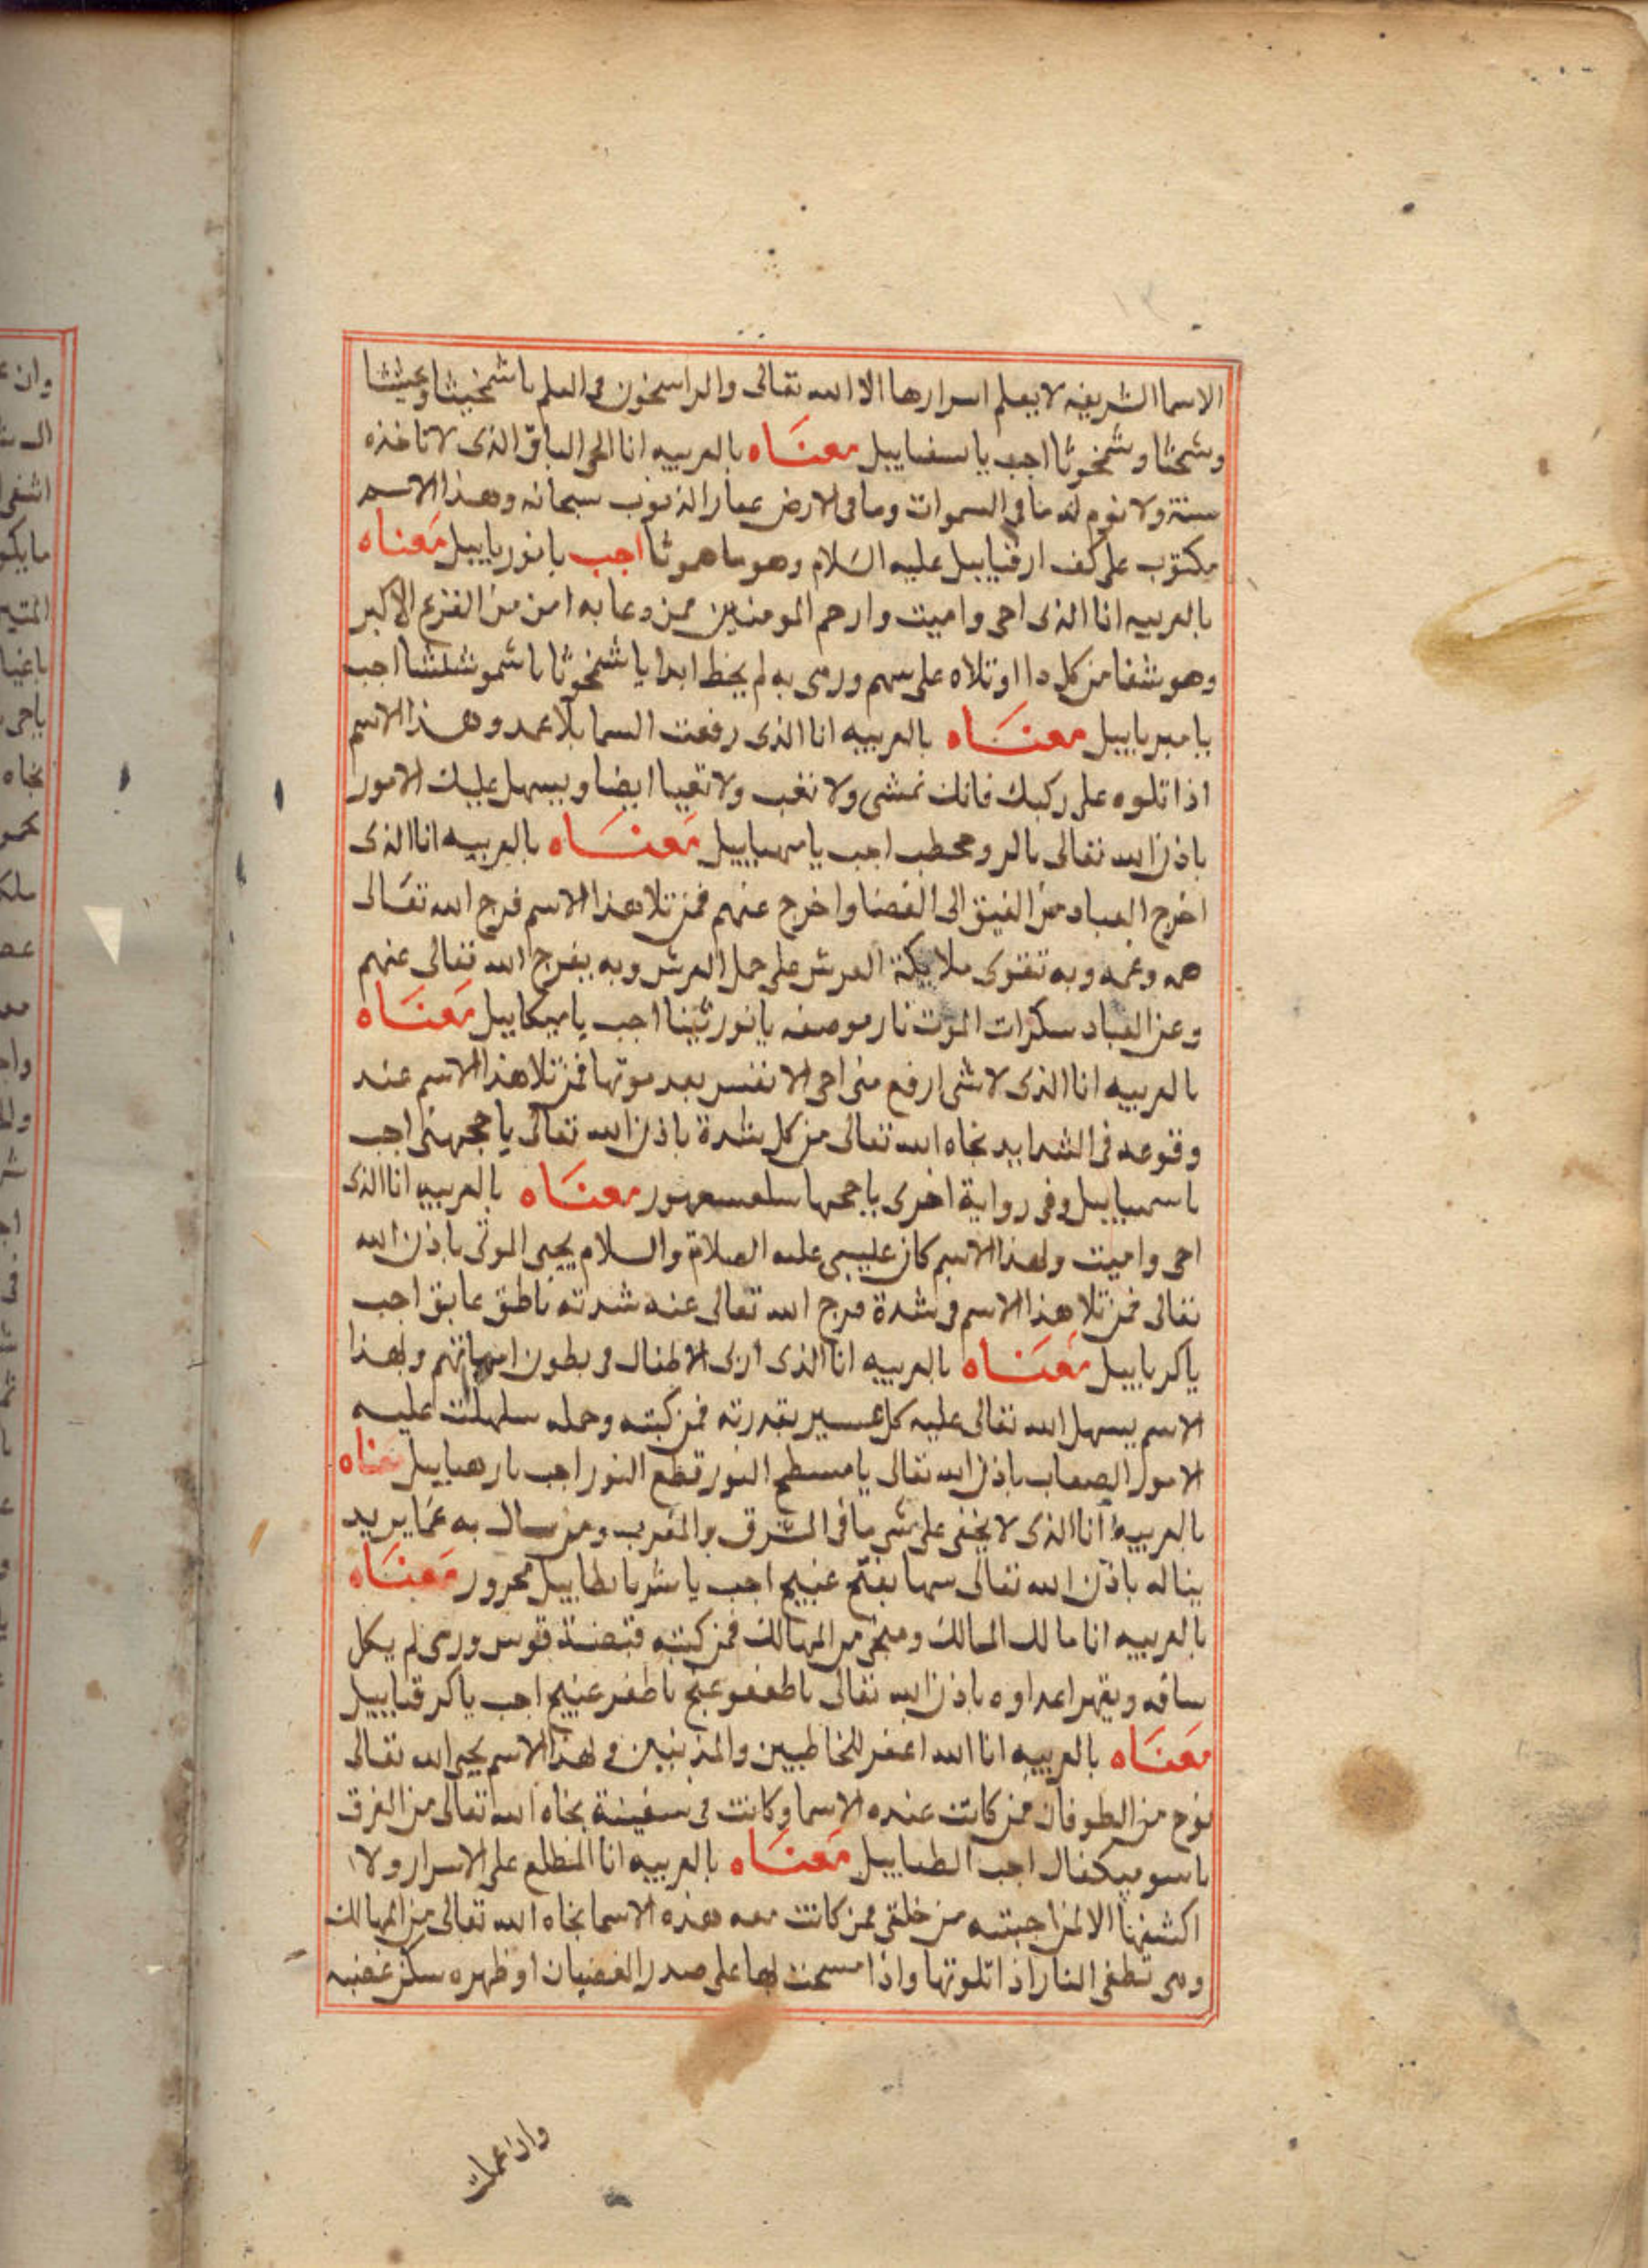 الاسما الشريفه لا يعلم اسرارها الا الله تعالى والراسخون فى العلم يا شمخيثا وعيثثا
وشمخثا وشمخوثا اجب يا سفياييل معناه بالعربيه انا الحى الباقى الذى لا تاخذه
سنة ولا نوم له ما فى السموات وما فى الارض غفار الذنوب سبحانه وهذا الاسم
مكتوب على كف ارقياييل عليه السلام وهو ماهموثا اجب يا نورياييل معناه
بالعربيه انا الذى احى واميت وارحم المومنين فمن دعا به امن من الفزع الاكبر
وهو شفا من كل دا او تلاه على سهم ورمى به لم يخط ابدا يا شمخوثا يا شموشلشا اجب
يا ميرياييل معناه بالعربيه انا الذى رفعت السما بلا عمد وهذا الاسم
اذا تلوه على ركبك فانك تمشى ولا تغب ولا تعيا ايضا ويسهل عليك الامور
باذن الله تعالى اجب يا مهياييل معناه بالعربيه انا الذى
اخرج العباد من الضيق الى الفضا واخرج عنهم فمن تلا هذا الاسم فرج الله تعالى
همه وغمه وبه تتقوى ملايكة العرش على حمل العرش وبه يفرج الله تعالى عنهم
وعن العباد سكرات الموت نار موصفه يا نور ثينا اجب يا ميكاييل معناه
بالعربيه انا الذى لا شى ارفع منى احى الانفس بعد موتها فمن تلا هذا الاسم عند
وقوعه فى الشدايد نجاه الله تعالى من كل شدة باذن الله تعالى يا اجب
يا سمياييل وفى رواية اخرى يا معناه بالعربيه انا الذى
احى واميت وبهذا الاسم كان عيسى عليه الصلاة والسلام يحيى الموتى باذن الله
تعالى فمن تلا هذا الاسم فى شدة فرج الله تعالى عنه شدته ناطق عابق اجب
ياكرياييل معناه بالعربيه انا الذى اربى الاطفال فى بطون امهاتهم وبهذا
الاسم يسهل الله تعالى عليه كل عسير بقدرته فمن كتبه وحمله سلهلت عليه
الامور الصعاب باذن الله تعالى يا مسطح النور قطع النور اجب يا رهياييل معناه
بالعربيه انا الذى لا يخفى على شى ما فى الشرق والمغرب ومن سال به عما يريد
يناله باذن الله تعالى اجب يا معناه
بالعربيه انا مالك الممالك ومنجى من المهالك فمن كتبه قبضة قوس ورمى لم يكل
ساقه ويقهر اعداوه باذن الله تعالى اجب ياكرقياييل
معناه بالعربيه انا الله اغفر للخاطيين والمذنبين و بهذا الاسم نجى الله تعالى
نوح من الطوفان فمن كانت عنده الاسما وكانت فى سفينة نجاه الله تعالى من الغرق
اجب الطياييل معناه بالعربيه انا المطلع على الاسرار ولا
اكشفها الا لمن احببته من خلقى فمن كانت معه هذه الاسما نجاه الله تعالى من المهالك
وهى تطفى النار اذا تلوتها واذا مسحت بها على صدر الغضبان او ظهره سكن غضبه
واذا عملت